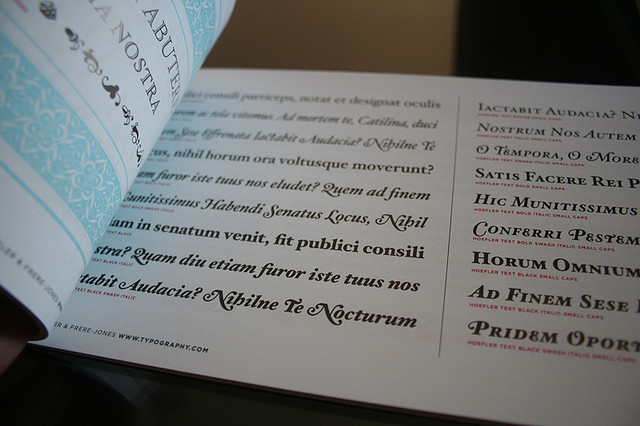 ABUTER
NOSTRA
consili particeps, notat et designat oculis
ac tela vitemus. Ad mortem te, Catilina, duci
Sese Effrenata Iactabit Audacia? Nihilne Te
nihil horum ora voltusque moverunt?
furor iste tuus nos eludet? Quem ad finem
Habendi Senatus Locus, Nihil
in senatum venit, fit publici consili
Quam diu etiam furor iste tuus nos
Audacia? Nihilne Te Nocturnum
TEXT BLACK SWASH ITALIC
& FRERE-JONES WWW.TYPOGRAPHY.COM
IACTABIT AUDACIA?
NOSTRUM NOS AUTEM
O TEMPORA, O
SATIS FACERE REI
HOEFLER TEXT BOLD SMALL CAPS
HIC MUNITISSIMUS
HOEFLER TEXT BOLD ITALIC SMALL CAPS
CONFERRI
HOEFLER TEXT BOLD SWASH ITALIC SMALL CAPS
HORUM OMNIUM
HOEFLER TEXT BLACK SMALL CAPS
AD FINEM SESE
HOEFLER TEXT BLACK ITALIC SMALL CAPS
PRIDEM
HOEFLER TEXT BLACK SWASH ITALIC SMALL CAPS
& FRERE-JONES